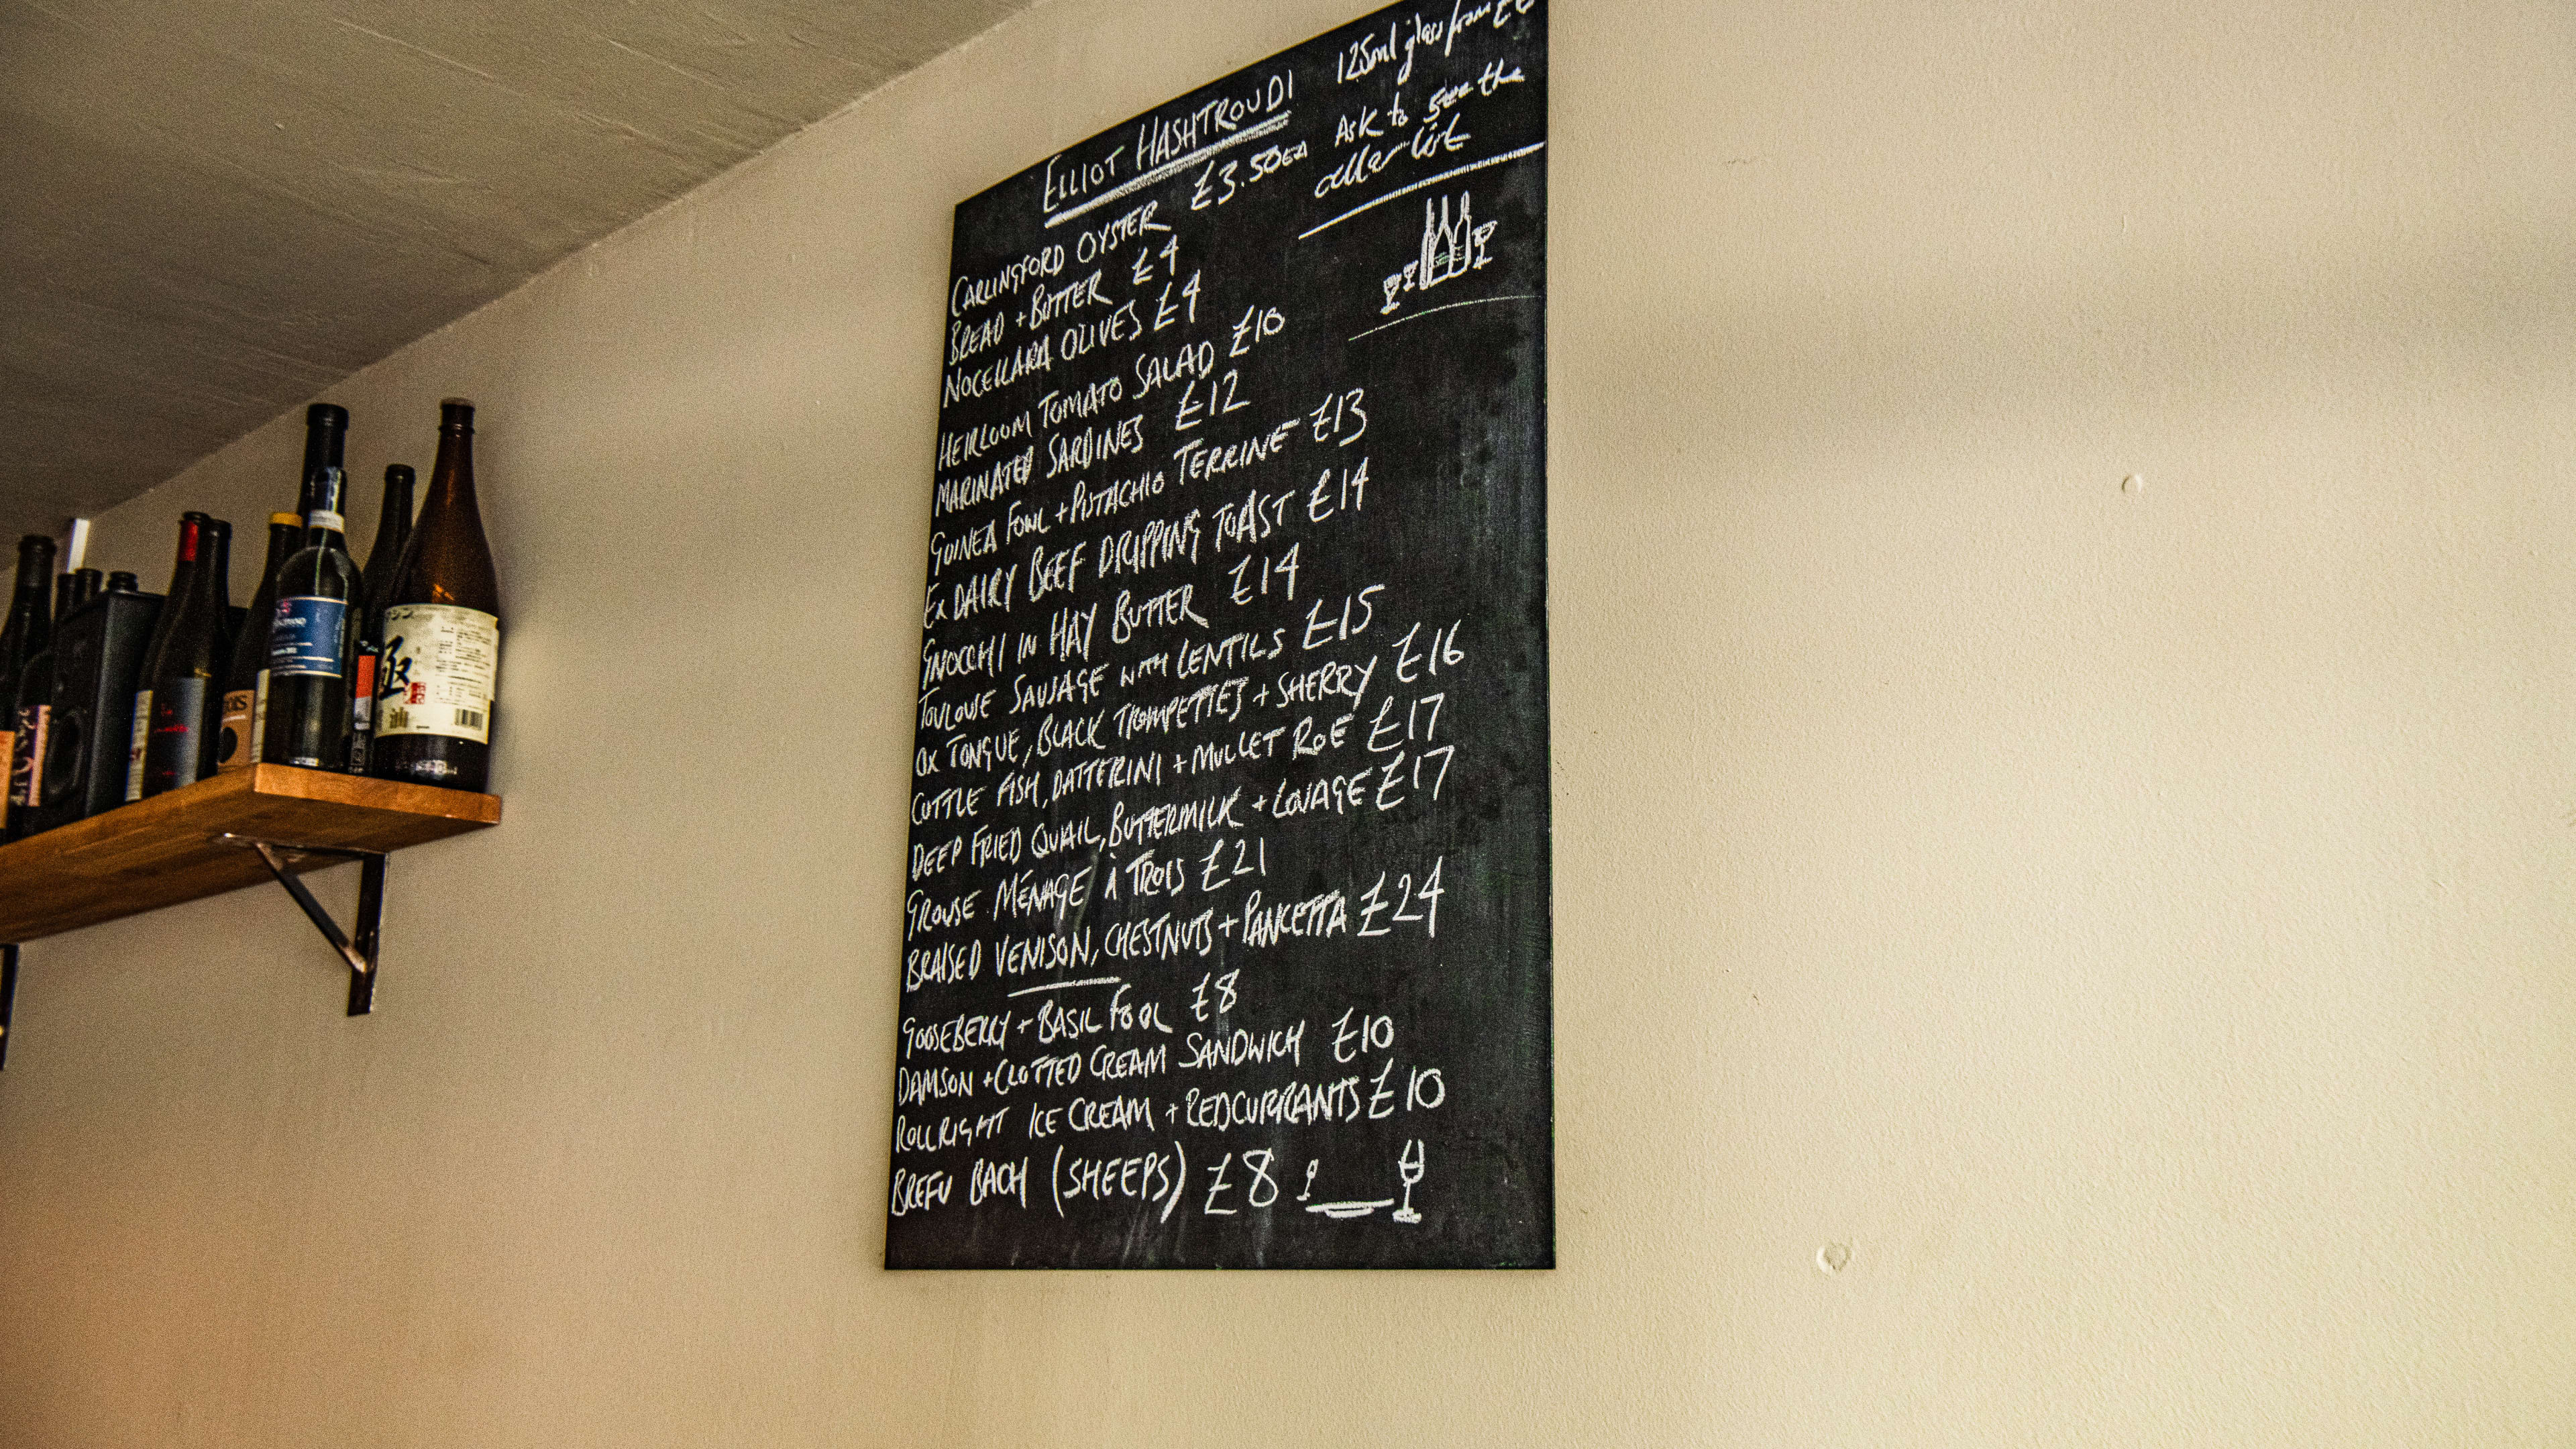 ELLIOT HASHTROUDI
125ml glass from £6
Ask to see the
cellar list
CARLINGFORD OYSTER £3.50EA
BREAD + BUTTER £4
NOCELLARA OLIVES £4
HEIRLOOM TOMATO SALAD £10
MARINATED SARDINES £12
GUINEA FOWL + PISTACHIO TERRINE £13
EX DAIRY BEEF DRIPPING TOAST £14
GNOCCHI IN HAY BUTTER £14
TOULOUSE SAUSAGE WITH LENTILS £15
OX TONGUE, BLACK TROMPETTES + SHERRY £16
CUTTLE FISH, DATTERINI + MULLET ROE £17
DEEP FRIED QUAIL, BUTTERMILK + LOVAGE £17
GROUSE MÉNAGE À TROIS £21
BRAISED VENISON, CHESTNUTS + PANCETTA £24
GOOSEBERRY + BASIL FOOL £8
DAMSON + CLOTTED CREAM SANDWICH £10
ROLLRIGHT ICE CREAM + REDCURRANTS £10
BREFU BACH (SHEEPS) £8
極